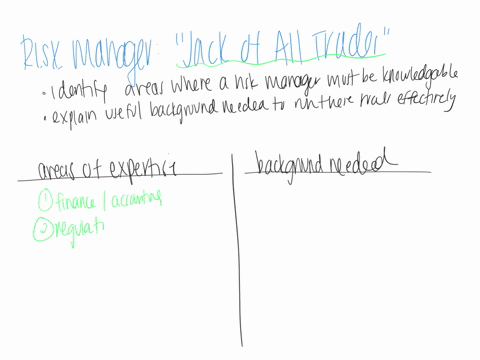 Risk Manager: "Jack of All Trades"
• identify areas where a risk manager must be knowledgable
• explain useful background needed to run there effectively
areas of expertise
background needed
① finance / accounting
② regulati